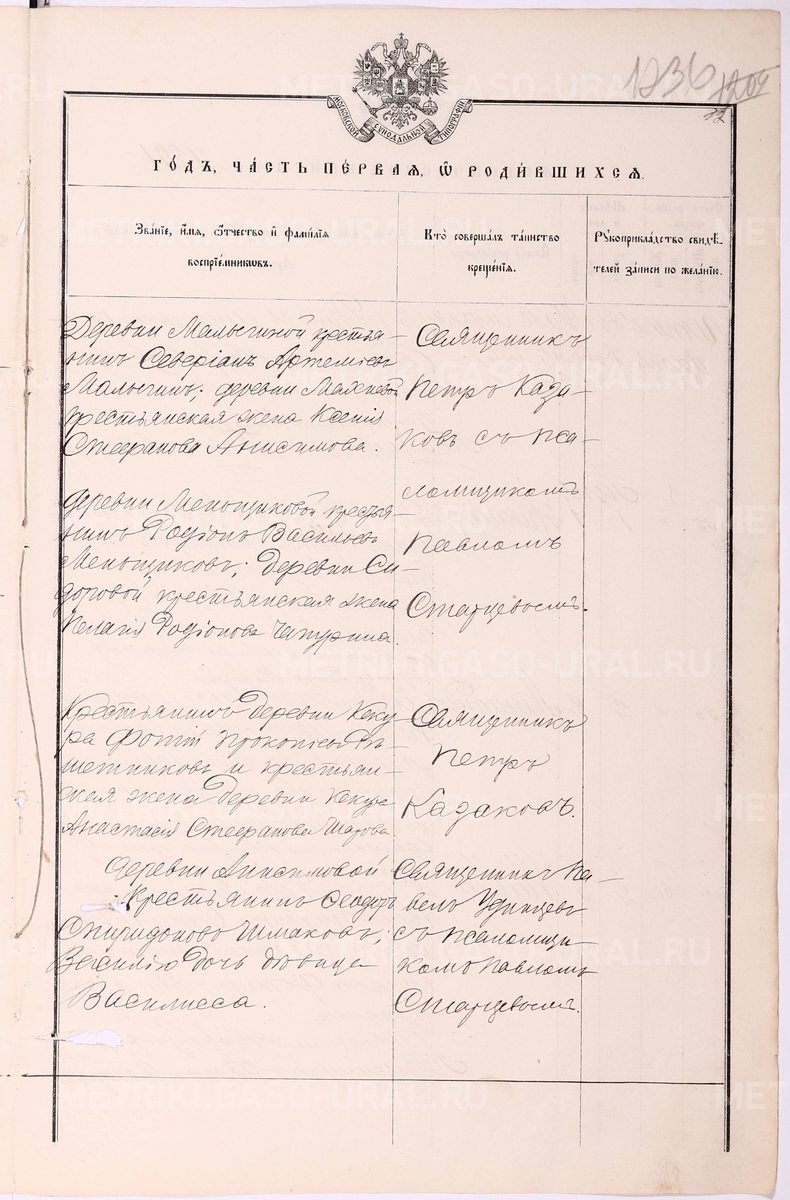 1236
1204
МОСКОВСКОЙ СѴНОДАЛЬНОЙ ТИПОГРАФІИ
ГО́ДЪ, ЧА́СТЬ ПЕ́РВАЯ, Ѿ РОДИ́ВШИХСЯ.
Зва́нїе, и́мя, ѻ҆́тчество и҆ фами́лїя
воспрїе́мникѡвъ.
Кто̀ соверша́лъ та́инство
креще́нїя.
Рꙋкоприкла́дство свидѣ́-
телей за́писи по жела́нїю.
Деревни Малыгиной крестья-
нинъ Северіанъ Артеміевъ
Малыгинъ; деревни Махневой
крестьянская жена Ксенія
Стефанова Анисимова.
Священникъ
Петръ Каза-
ковъ съ пса-
ломщикомъ
Павломъ
Старцевымъ.
Деревни Меньщиковой крестья-
нинъ Родіонъ Васильевъ
Меньщиковъ; деревни Си-
доровой крестьянская жена
Пелагія Родіонова Чапурина.
Крестьянинъ деревни Коку-
ра Фотій Прокопьевъ Рѣ-
шетниковъ и крестьян-
ская жена деревни Кокуя
Анастасія Стефанова Шарова.
Священникъ
Петръ
Казаковъ.
Деревни Анисимовой
крестьянинъ Ѳеодоръ
Спиридоновъ Шмаковъ;
Василія дочь дѣвица
Василисса.
Священникъ Па-
велъ Удинцевъ
съ псаломщи-
комъ Павломъ
Старцевымъ.
METRIKI.GASO-URAL.RU